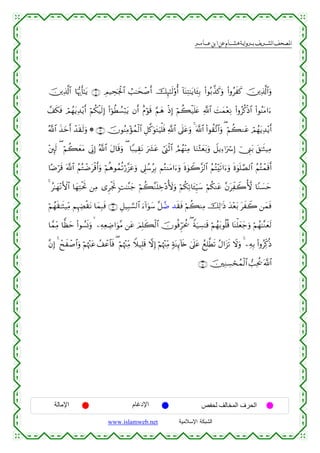 المصحف الشريف برواية هشام عن ابن عامر
وَٱلَّذِينَ كَفَرُواْ وَكَذَّبُواْ بِـَٔايَٰتِنَآ أُوْلَٰٓئِكَ أَصْحَٰبُ ٱلْجَحِيمِ ۝ يَٰٓأَيُّهَا ٱلَّذِينَ
ءَامَنُواْ ٱذْكُرُواْ نِعْمَتَ ٱللَّهِ عَلَيْكُمْ إِذْ هَمَّ قَوْمٌ أَن يَبْسُطُوٓاْ إِلَيْكُمْ أَيْدِيَهُمْ فَكَفَّ
أَيْدِيَهُمْ عَنكُمْ ۖ وَٱتَّقُواْ ٱللَّهَ ۚ وَعَلَى ٱللَّهِ فَلْيَتَوَكَّلِ ٱلْمُؤْمِنُونَ ۝ ۞ وَلَقَدْ أَخَذَ ٱللَّهُ
مِيثَٰقَ بَنِىٓ إِسْرَٰٓءِيلَ وَبَعَثْنَا مِنْهُمُ ٱثْنَىْ عَشَرَ نَقِيبًا ۖ وَقَالَ ٱللَّهُ إِنِّى مَعَكُمْ ۖ لَئِنْ
أَقَمْتُمُ ٱلصَّلَوٰةَ وَءَاتَيْتُمُ ٱلزَّكَوٰةَ وَءَامَنتُم بِرُسُلِى وَعَزَّرْتُمُوهُمْ وَأَقْرَضْتُمُ ٱللَّهَ قَرْضًا
حَسَنًا لَّأُكَفِّرَنَّ عَنكُمْ سَيِّـَٔاتِكُمْ وَلَأُدْخِلَنَّكُمْ جَنَّٰتٍ تَجْرِى مِن تَحْتِهَا ٱلْأَنْهَٰرُ ۚ
فَمَن كَفَرَ بَعْدَ ذَٰلِكَ مِنكُمْ فَقَد ضَّلَّ سَوَآءَ ٱلسَّبِيلِ ۝ فَبِمَا نَقْضِهِم مِّيثَٰقَهُمْ
لَعَنَّٰهُمْ وَجَعَلْنَا قُلُوبَهُمْ قَٰسِيَةً ۖ يُحَرِّفُونَ ٱلْكَلِمَ عَن مَّوَاضِعِهِۦ ۙ وَنَسُواْ حَظًّا مِّمَّا
ذُكِّرُواْ بِهِۦ ۚ وَلَا تَزَالُ تَطَّلِعُ عَلَىٰ خَآئِنَةٍ مِّنْهُمْ إِلَّا قَلِيلًا مِّنْهُمْ ۖ فَٱعْفُ عَنْهُمْ وَٱصْفَحْ ۚ إِنَّ
ٱللَّهَ يُحِبُّ ٱلْمُحْسِنِينَ ۝
الحرف المخالف لحفص الإدغام الإمالة
الشبكة الإسلامية www.islamweb.net